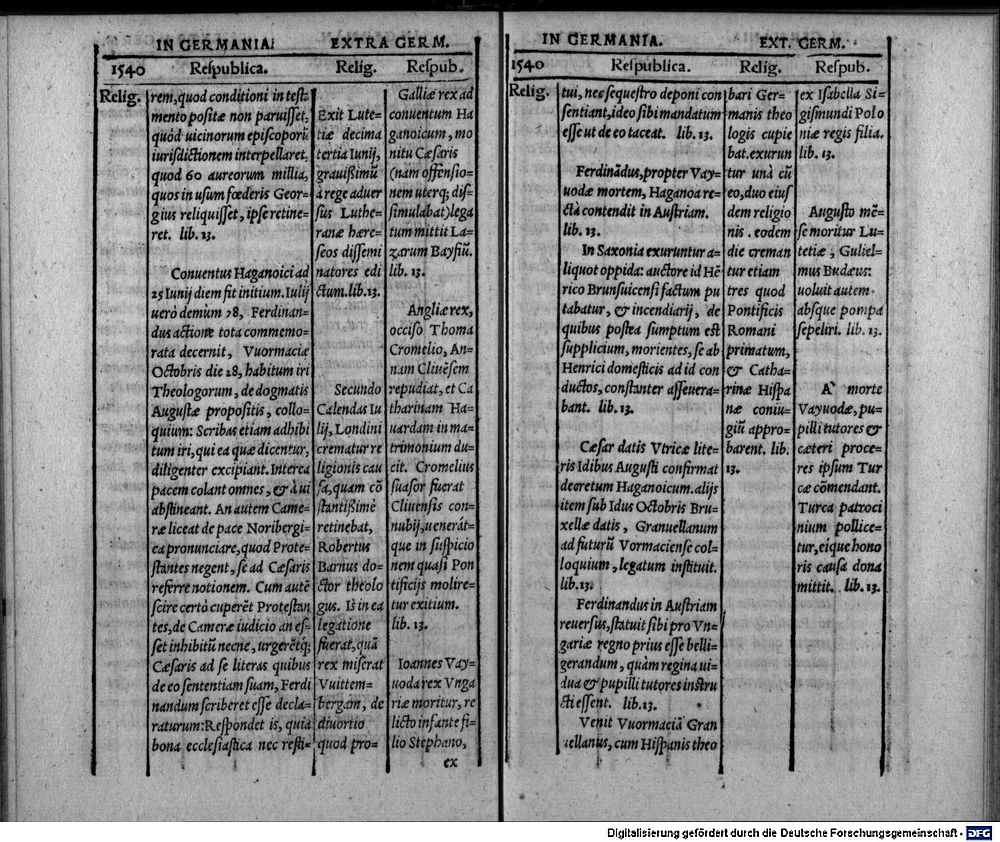 IN GERMANIA.
EXTRA GERM.
1540
Reſpublica.
Relig.
Reſpub.
Relig.
rem, quod conditioni in teſta
mento poſitæ non paruiſſet,
quòd uicinorum epiſcoporũ
iuriſdictionem interpellaret,
quod 60 aureorum millia,
quos in uſum fœderis Geor-
gius reliquiſſet, ipſe retine-
ret. lib. 13.
Conuentus Haganoici ad
25 Iunij diem fit initium. Iulij
uerò demùm 28, Ferdinan-
dus actione tota commemo-
rata decernit, Vuormaciæ
Octobris die 28, habitum iri
Theologorum, de dogmatis
Auguſtæ propoſitis, collo-
quium: Scribas etiam adhibi
tum iri, qui ea quæ dicentur,
diligenter excipiant. Interea
pacem colant omnes, & à ui
abſtineant. An autem Came-
ræ liceat de pace Noribergi-
ca pronunciare, quod Prote-
ſtantes negent, ſe ad Cæſaris
referre notionem. Cum autẽ
ſcire certò cuperẽt Proteſtan
tes, de Cameræ iudicio an eſ-
ſet inhibitũ necne, urgerẽtq́;
Cæſaris ad ſe literas quibus
de eo ſententiam ſuam, Ferdi
nandum ſcriberet eſſe decla-
raturum: Reſpondet is, quia
bona eccleſiaſtica nec reſti-
Exit Lute-
tiæ decima
tertia Iunij,
grauiſsimũ
à rege aduer
ſus Luthe-
ranæ hære-
ſeos diſſemi
natores edi
ctum. lib. 13.
Secundo
Calendas Iu
lij, Londini
crematur re
ligionis cau
ſa, quam cõ
ſtantiſsimè
retinebat,
Robertus
Barnus do-
ctor theolo
gus. Is in ea
legatione
fuerat, quã
rex miſerat
Vuittem-
bergam, de
diuortio
quod pro-
Galliæ rex ad
conuentum Ha
ganoicum, mo
nitu Cæſaris
(nam offenſio-
nem uterq; diſ-
ſimulabat) lega
tum mittit La-
zarum Bayfiũ.
lib. 13.
Angliæ rex,
occiſo Thoma
Cromelio, An-
nam Cliuẽſem
repudiat, et Ca
tharinam Ha-
uardam in ma-
trimonium du-
cit. Cromelius
ſuaſor fuerat
Cliuenſis con-
nubij, uenerát-
que in ſuſpicio
nem quaſi Pon
tificijs molire-
tur exitium.
lib. 13.
Ioannes Vay-
uoda rex Vnga
riæ moritur, re
licto infante fi-
lio Stephano,
ex
IN GERMANIA.
EXT. GERM.
1540
Reſpublica.
Relig.
Reſpub.
Relig.
tui, nec ſequeſtro deponi con
ſentiant, ideo ſibi mandatum
eſſe ut de eo taceat. lib. 13.
Ferdinãdus, propter Vay-
uodæ mortem, Haganoa re-
ctà contendit in Auſtriam.
lib. 13.
In Saxonia exuruntur a-
liquot oppida: auctore id Hẽ
rico Brunſuicenſi factum pu
tabatur, & incendiarij, de
quibus poſtea ſumptum eſt
ſupplicium, morientes, ſe ab
Henrici domeſticis ad id con
ductos, conſtanter aſſeuera-
bant. lib. 13.
Cæſar datis Vtricæ lite-
ris Idibus Auguſti confirmat
decretum Haganoicum. alijs
item ſub Idus Octobris Bru-
xellæ datis, Granuellanum
ad futurũ Vormacienſe col-
loquium, legatum inſtituit.
lib. 13.
Ferdinandus in Auſtriam
reuerſus, ſtatuit ſibi pro Vn-
gariæ regno prius eſſe belli-
gerandum, quàm regina ui-
dua & pupilli tutores inſtru
cti eſſent. lib. 13.
Venit Vuormaciã Gran
uellanus, cum Hiſpanis theo
bari Ger-
manis theo
logis cupie
bat. exurun
tur unà cũ
eo, duo eiuſ
dem religio
nis. eodem
die creman
tur etiam
tres quod
Pontificis
Romani
primatum,
& Catha-
rinæ Hiſpa
næ coniu-
giũ appro-
barent. lib.
13.
ex Iſabella Si-
giſmundi Polo
niæ regis filia.
lib. 13.
Auguſto mẽ-
ſe moritur Lu-
tetiæ, Guliel-
mus Budæus:
uoluit autem
abſque pompa
ſepeliri. lib. 13.
A' morte
Vayuodæ, pu-
pilli tutores &
cæteri proce-
res ipſum Tur
cæ cõmendant.
Turca patroci
nium pollice-
tur, eique hono
ris cauſa dona
mittit. lib. 13.
Digitalisierung gefördert durch die Deutsche Forschungsgemeinschaft - DFG